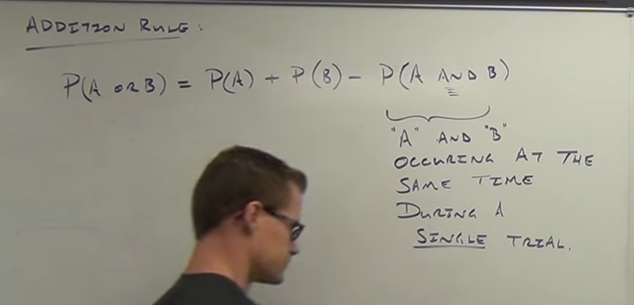 ADDITION RULE:
P(A OR B) = P(A) + P(B) - P(A AND B)
"A" AND "B"
OCCURING AT THE
SAME TIME
DURING A
SINGLE TRIAL.